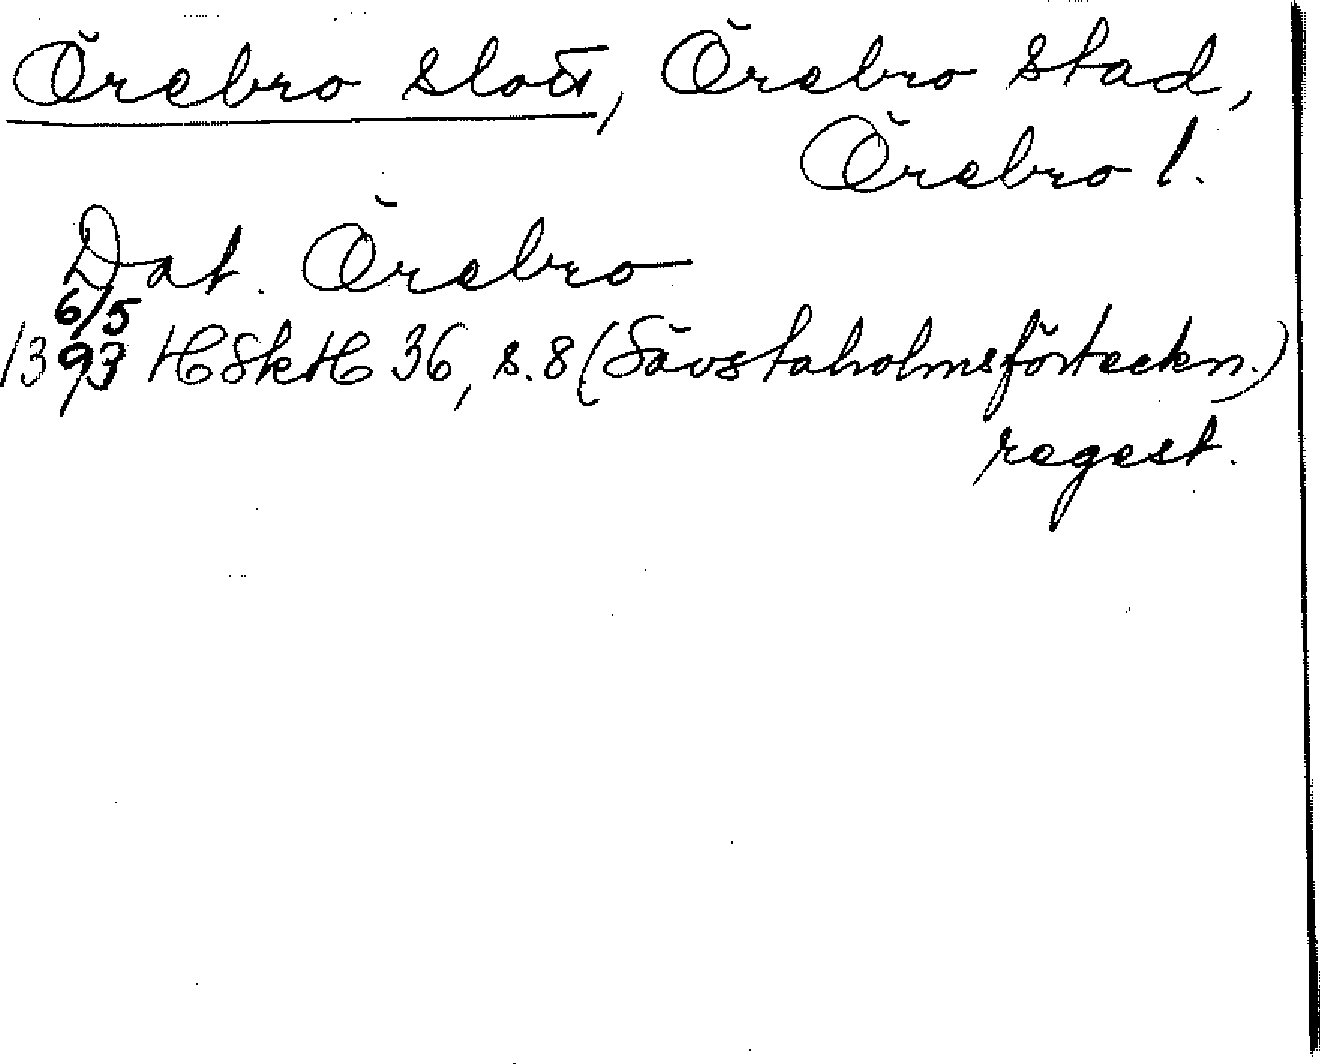 Örebro slott, Örebro stad,
Örebro l.
Dat. Örebro
6/5
1393 HSkH 36, s. 8 (Sävstaholmsförteckn.)
regest.